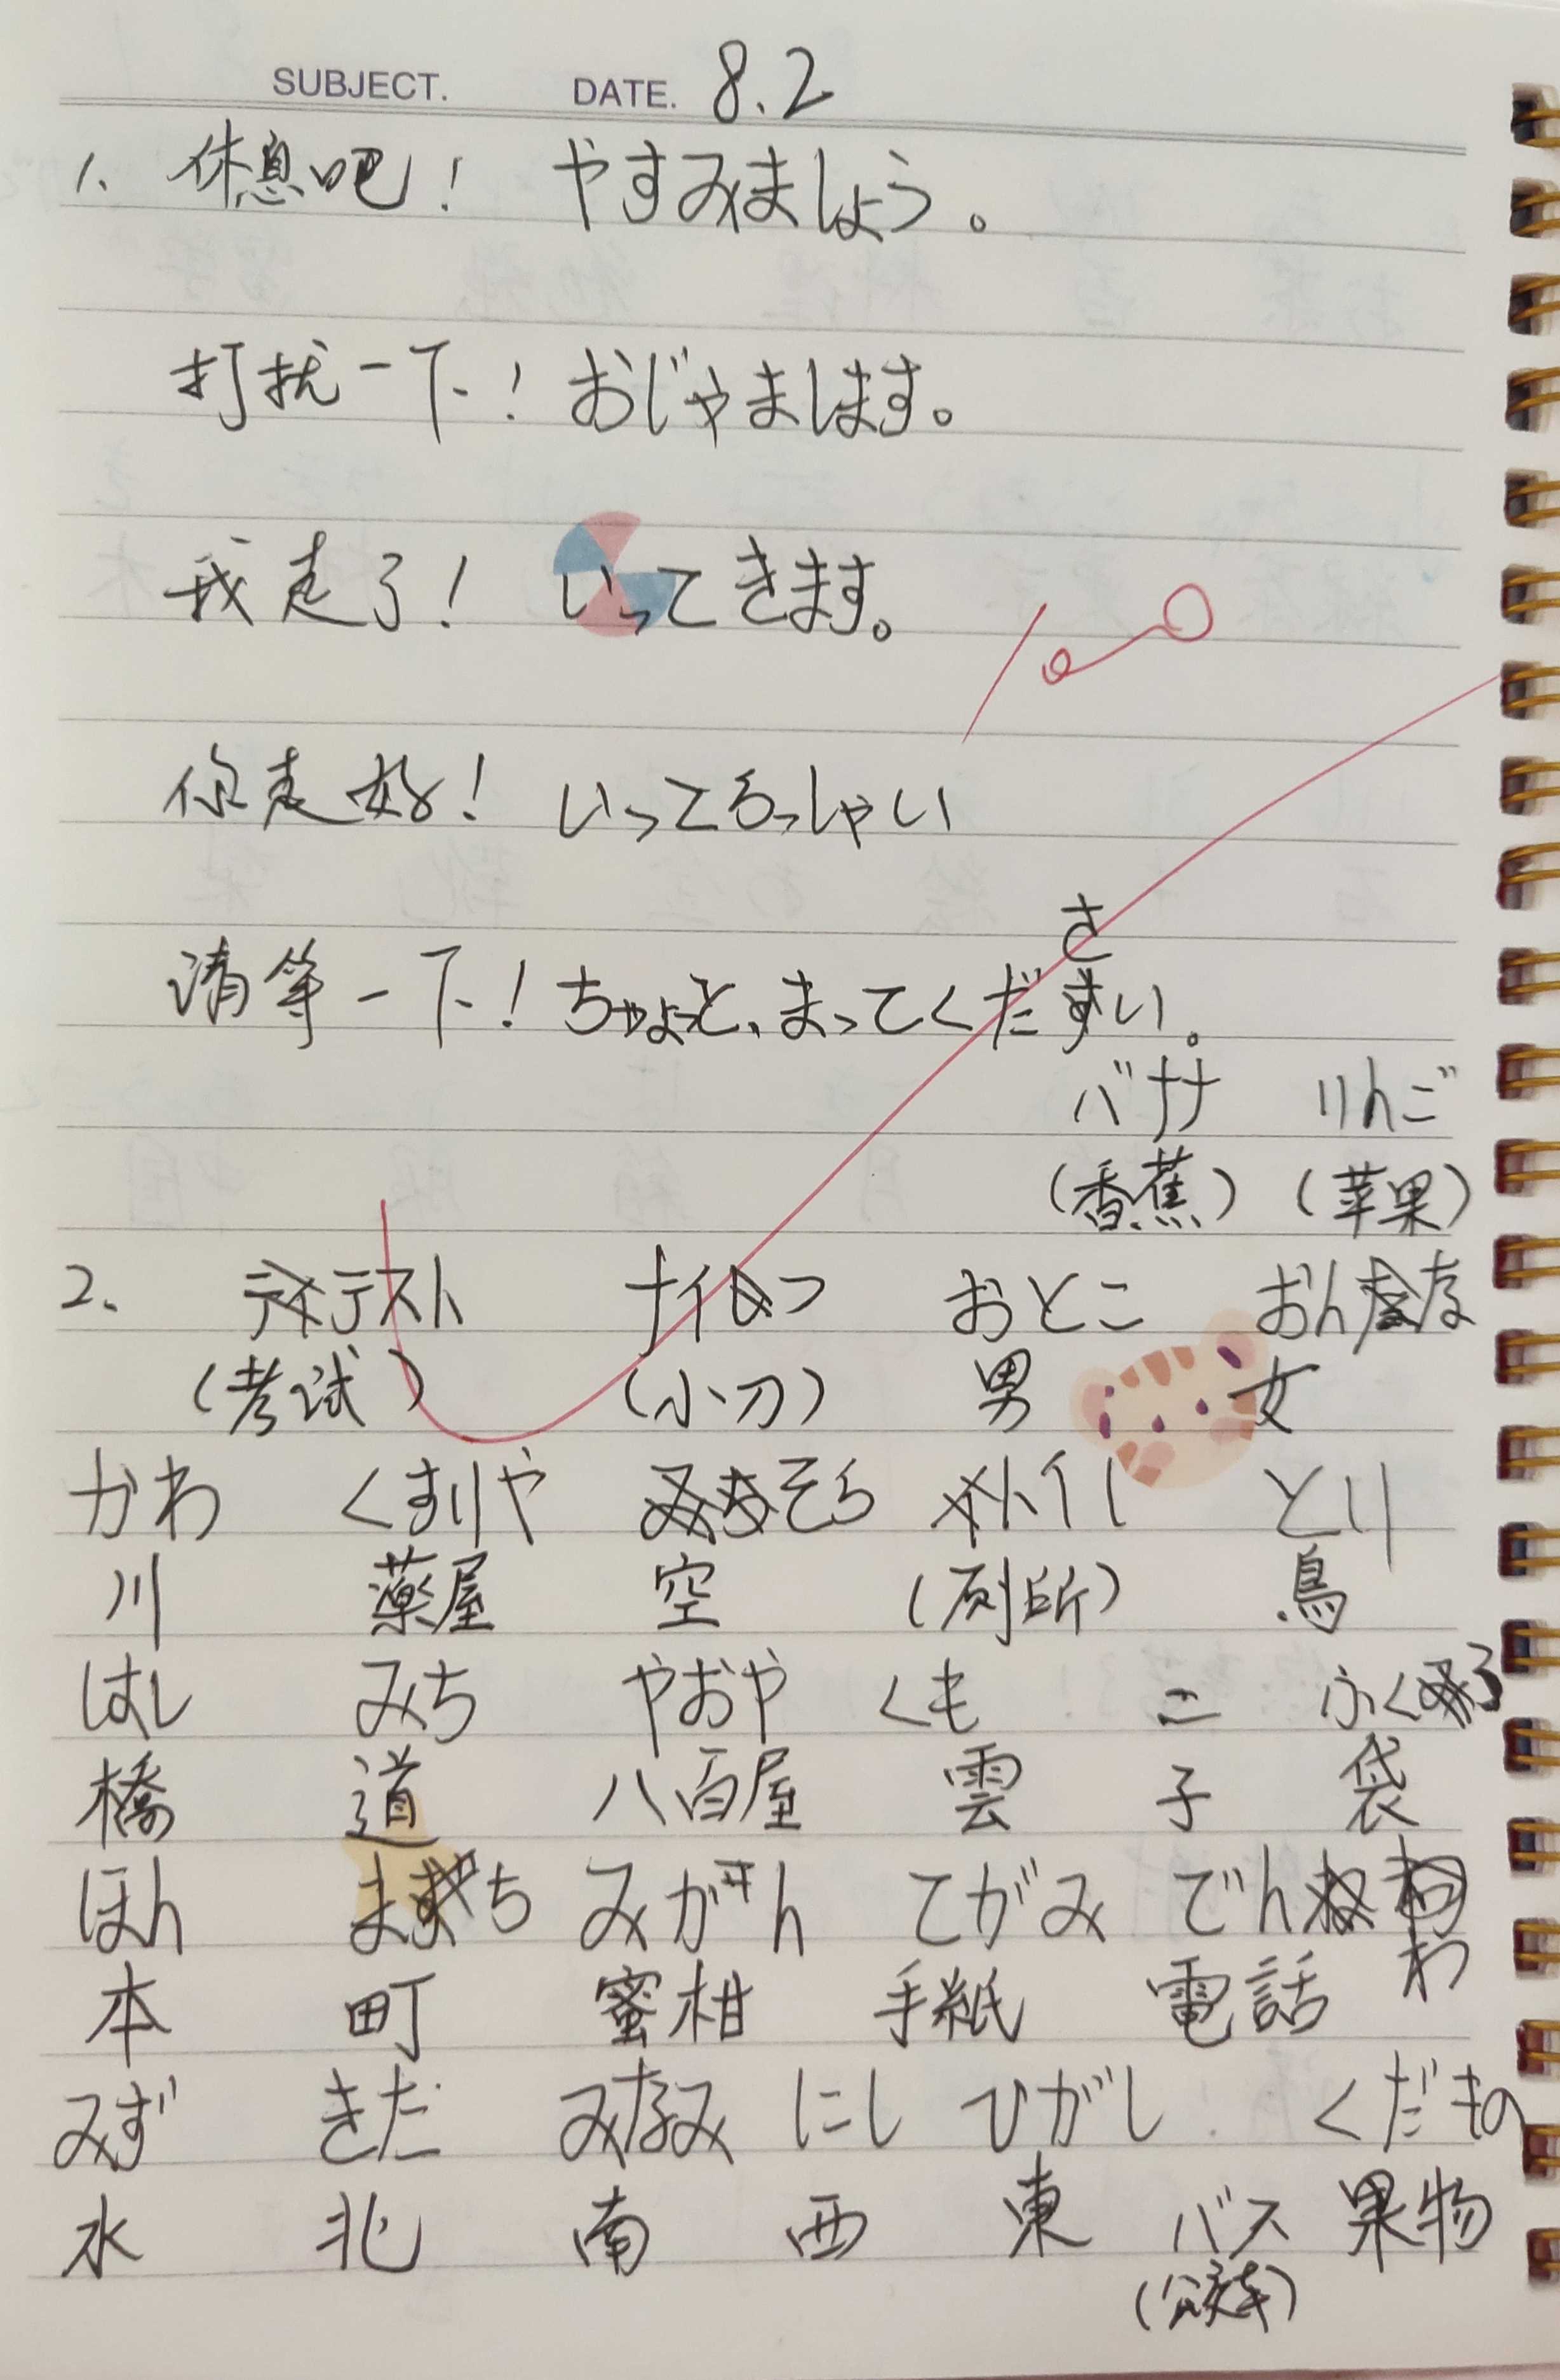 SUBJECT. DATE. 8.2
1、休息吧! やすみましょう。
打扰一下! おじゃまします。
我走了! いってきます。
100
你走好! いってらっしゃい
请等一下! ちょっと、まってください。
バナナ りんご
(香蕉) (苹果)
2、 テスト ナイフ おとこ おんな
(考试) (小刀) 男 女
かわ くすりや そら トイレ とり
川 薬屋 空 (厕所) 鳥
はし みち やおや くも こ ふくろ
橋 道 八百屋 雲 子 袋
ほん まち みかん てがみ でんわ
本 町 蜜柑 手紙 電話
みず きた みなみ にし ひがし くだもの
水 北 南 西 東 バス 果物
(公交车)